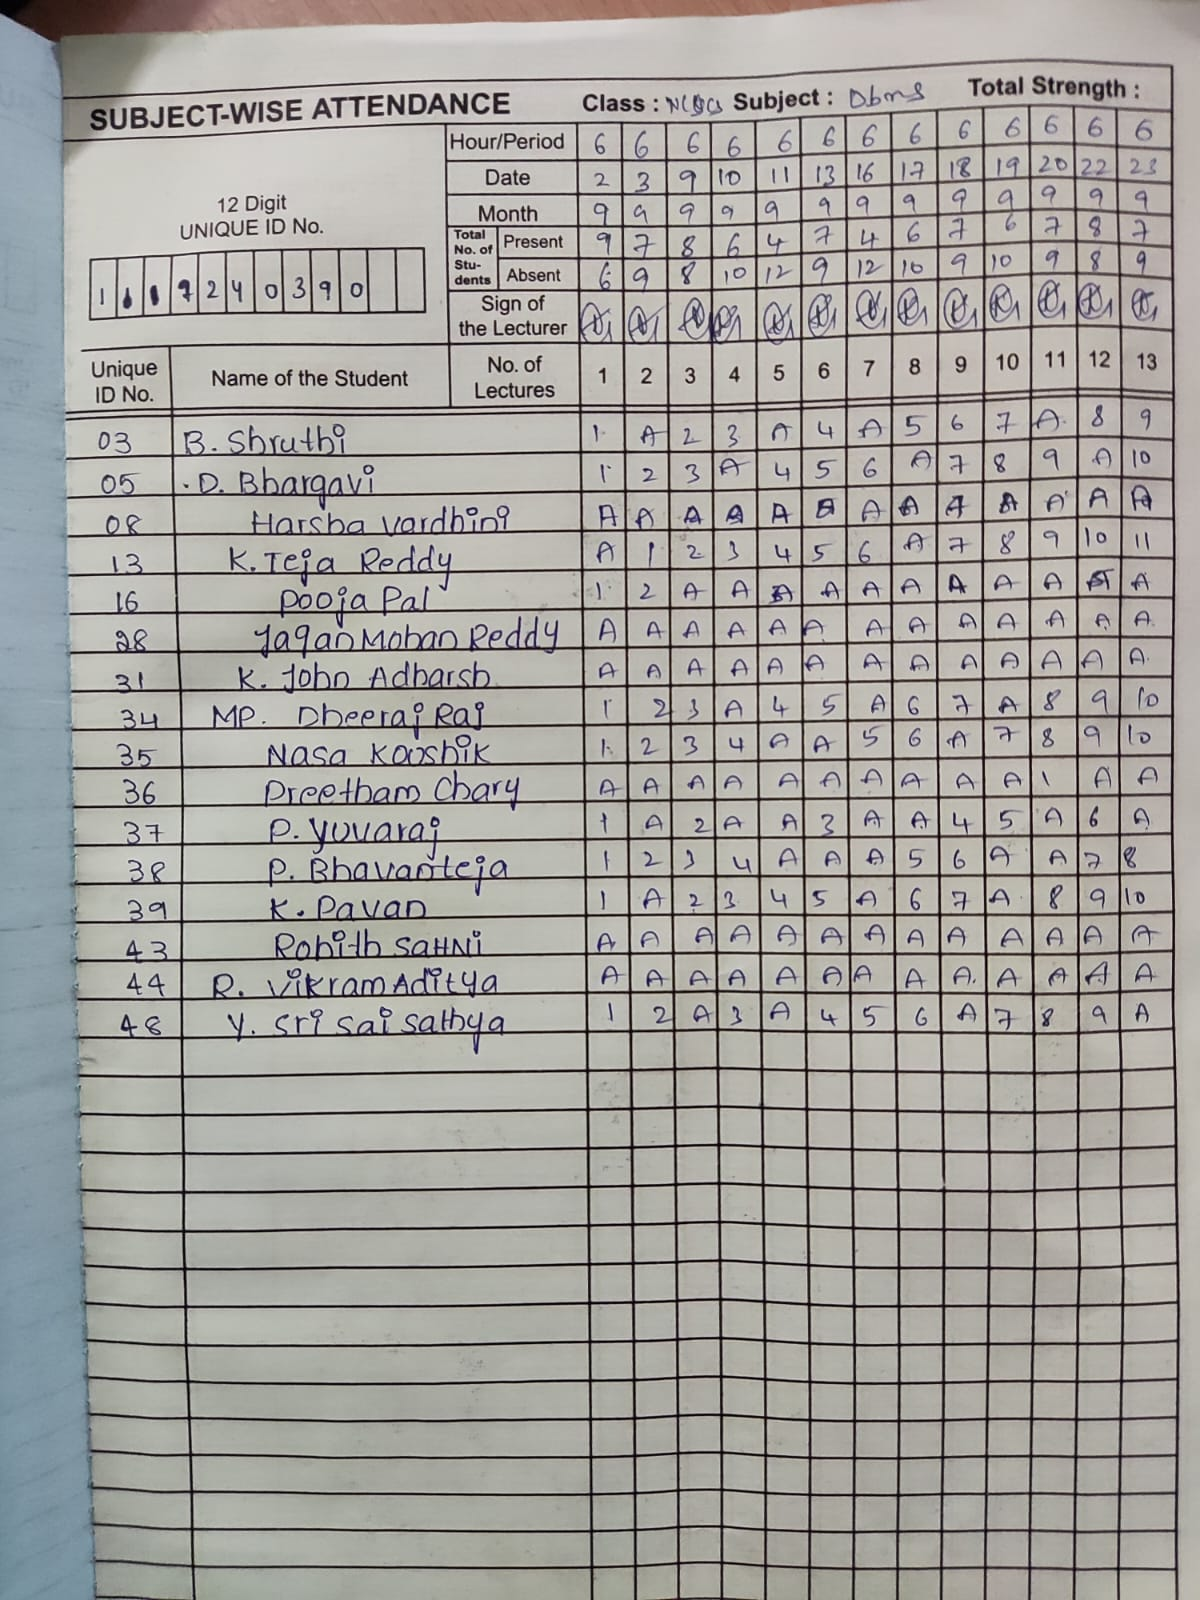 SUBJECT-WISE ATTENDANCE Class : Subject : Dbms Total Strength :
Hour/Period 6 6 6 6 6 6 6 6 6 6 6 6 6
Date 2 3 9 10 11 13 16 17 18 19 20 22 23
12 Digit
UNIQUE ID No.
Month 9 9 9 9 9 9 9 9 9 9 9 9 9
Total No. of Stu- dents Present 9 7 8 6 4 7 4 6 7 6 7 8 7
Absent 6 9 8 10 12 9 12 10 9 10 9 8 9
7240390
Sign of
the Lecturer
Unique ID No. Name of the Student No. of Lectures 1 2 3 4 5 6 7 8 9 10 11 12 13
03 B. Shruthi 1 A 2 3 A 4 A 5 6 7 A 8 9
05 D. Bhargavi 1 2 3 A 4 5 6 A 7 8 9 A 10
08 Harsha vardhini A A A A A A A A A A A A A
13 K. Teja Reddy A 1 2 3 4 5 6 A 7 8 9 10 11
16 Pooja Pal 1 2 A A A A A A A A A A A
28 Jagan Mohan Reddy A A A A A A A A A A A A A
31 K. John Adharsh A A A A A A A A A A A A A
34 MP. Dheeraj Raj 1 2 3 A 4 5 A 6 7 A 8 9 10
35 Nasa Kaoshik 1 2 3 4 A A 5 6 A 7 8 9 10
36 Preetham Chary A A A A A A A A A A 1 A A
37 P. Yuvaraj 1 A 2 A A 3 A A 4 5 A 6 A
38 P. Bhavanteja 1 2 3 4 A A A 5 6 A A 7 8
39 K. Pavan 1 A 2 3 4 5 A 6 7 A 8 9 10
43 Rohith SAHNi A A A A A A A A A A A A A
44 R. Vikram Aditya A A A A A A A A A. A A A A
48 Y. Sri Sai Sathya 1 2 A 3 A 4 5 6 A 7 8 9 A